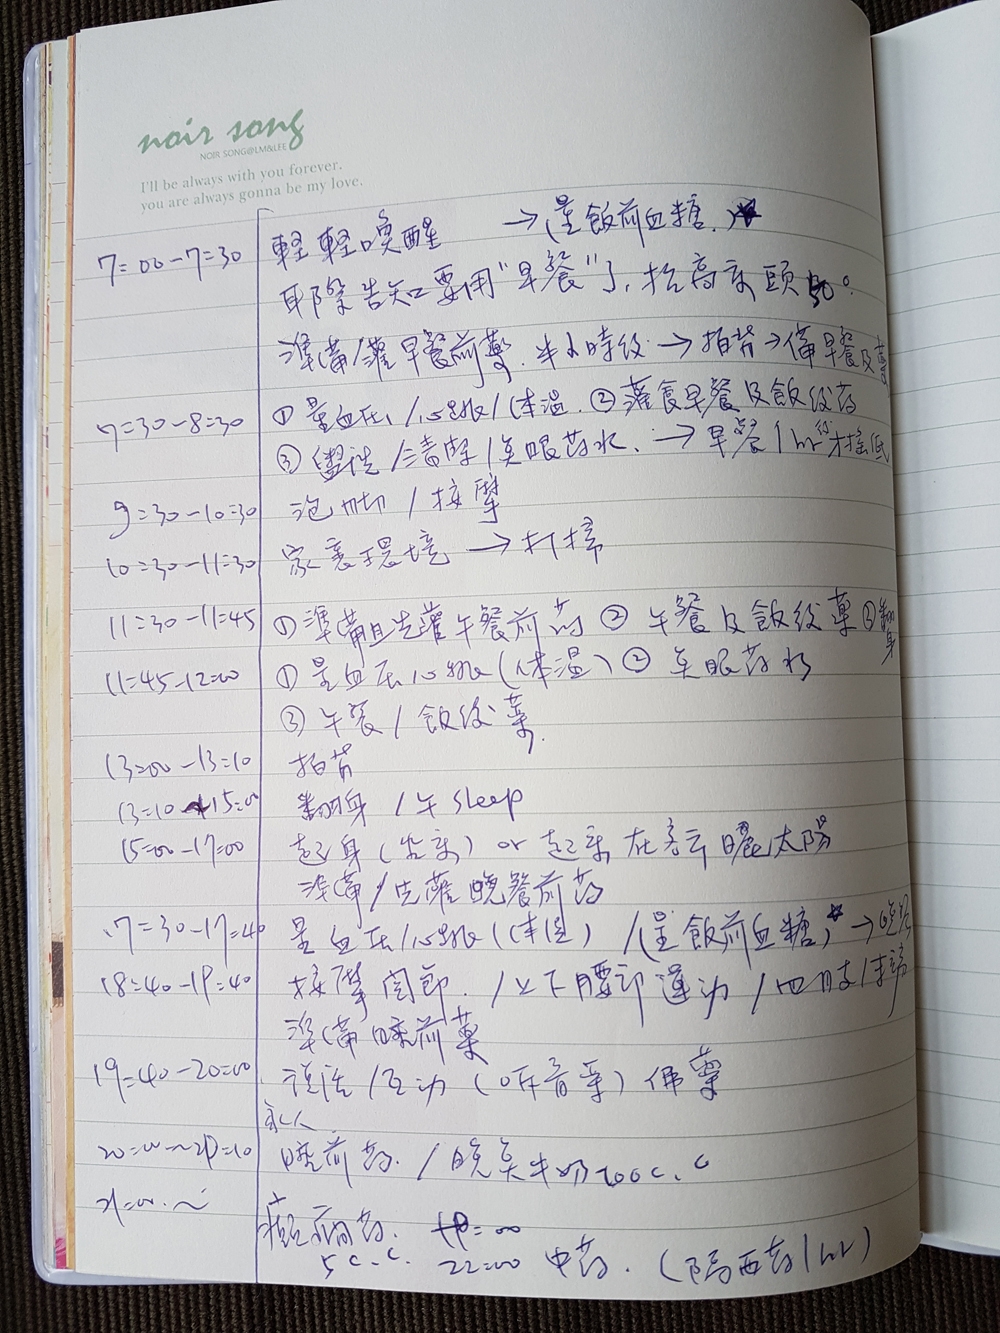 noir song
NOIR SONG@LM&LEE
I'll be always with you forever.
you are always gonna be my love.
7=00-7=30 輕輕喚醒 →(量飯前血糖)
告知要用"早餐"了,抬高床頭 50°
準備/灌早餐前藥.半小時後→拍背→備早餐及藥
7=30-8=30 ①量血压/心跳/体温.②灌食早餐及飯後药
③ /清潔/点眼药水. →早餐1hr後才搖低
9=30-10=30 泡脚/按摩
10=30-11=30 家裏環境→打掃
11=30-11=45 ①準備且先灌午餐前药 ②午餐及飯後藥 ③翻身
11=45-12=00 ①量血压/心跳(体温) ②点眼药水
③午餐/飯後藥.
13=00-13=10 拍背
13=10-15=00 翻身/午sleep
15=00-17=00 起身(坐床) or 起床在客厅曬太陽
準備/先灌晚餐前药
17=30-17=40 量血压/心跳(体温) /(量飯前血糖)→晚餐
18=40-19=40 按摩関節./上下腰部運动/四肢
準備睡前藥
19=40-20=00 說話/互动(听音乐)
家人
20=00~21=10 睡前药./晚点牛奶200c.c
21=00.~
癲癇药.
5c.c. 22=00 中药.(隔西药1hr)